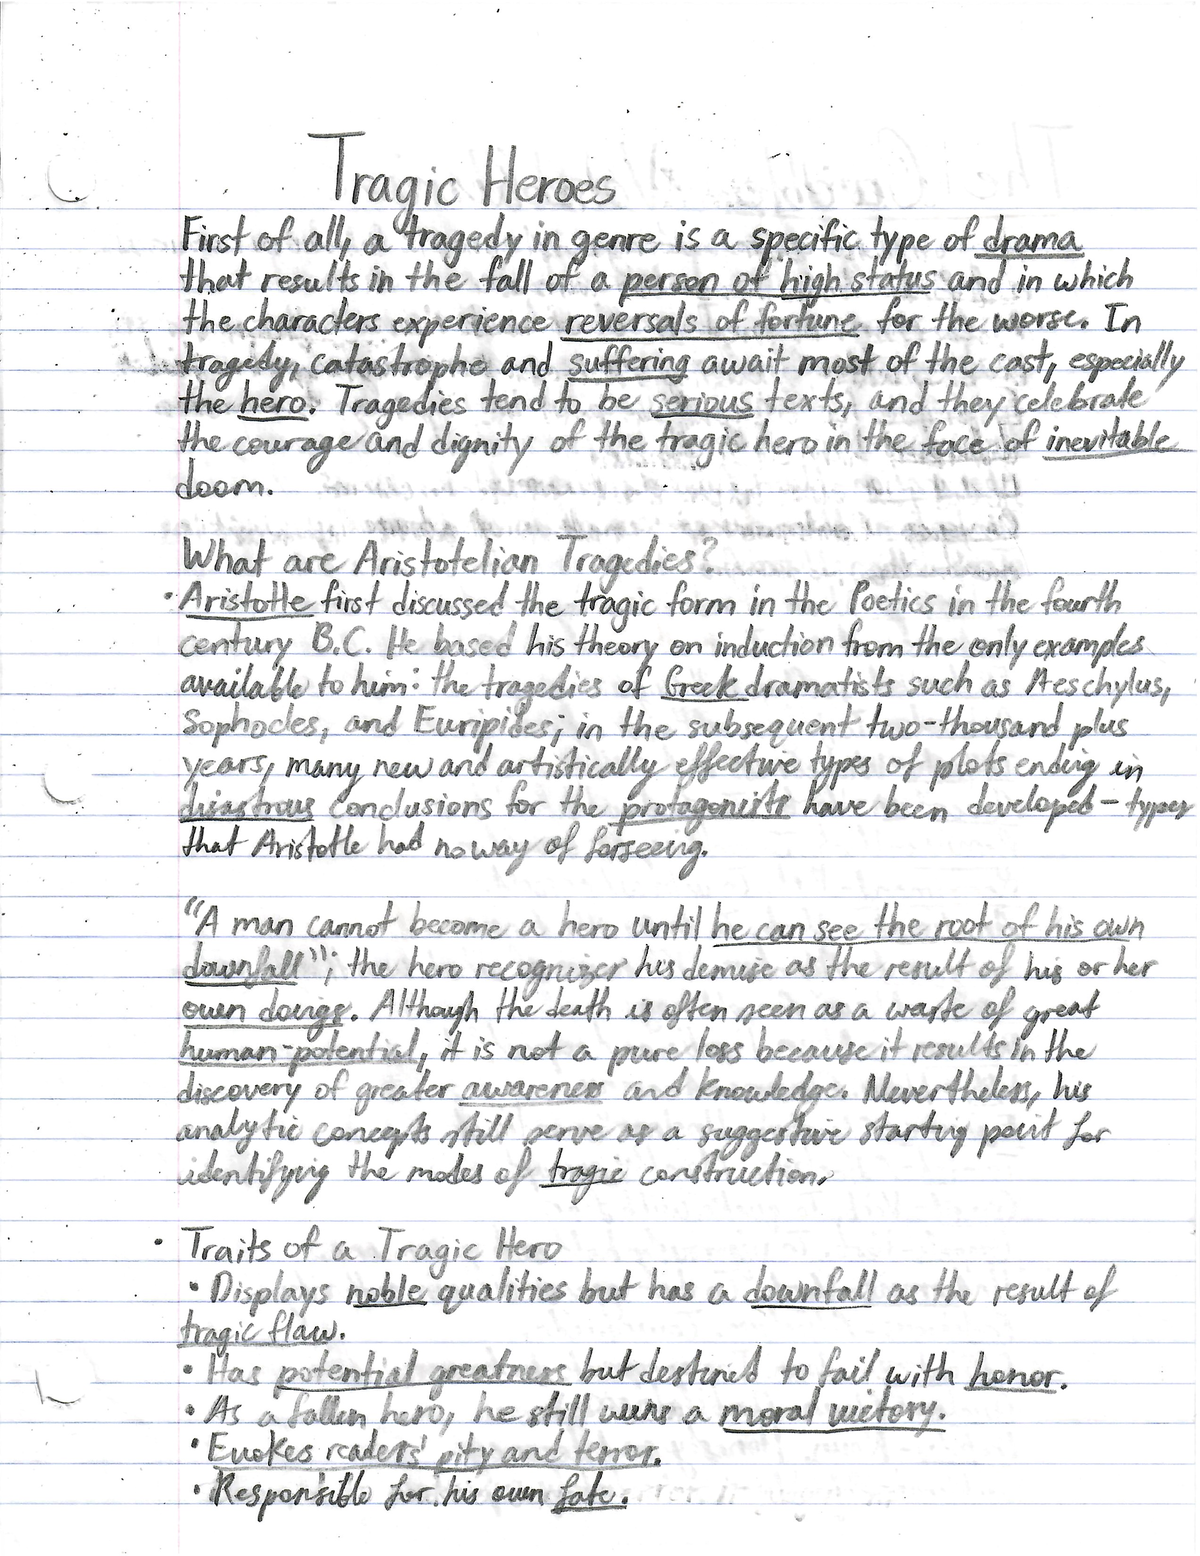 Tragic Heroes
First of all, a tragedy in genre is a specific type of drama
that results in the fall of a person of high status and in which
the characters experience reversals of fortune for the worse. In
tragedy, catastrophe and suffering await most of the cast, especially
the hero. Tragedies tend to be serious texts, and they celebrate
the courage and dignity of the tragic hero in the face of inevitable
doom.
What are Aristotelian Tragedies?
• Aristotle first discussed the tragic form in the Poetics in the fourth
century B.C. He based his theory on induction from the only examples
available to him: the tragedies of Greek dramatists such as Aeschylus,
Sophocles, and Euripides; in the subsequent two-thousand plus
years, many new and artistically effective types of plots ending in
disastrous conclusions for the protagonists have been developed - types
that Aristotle had no way of forseeing.
"A man cannot become a hero until he can see the root of his own
downfall"; the hero recognizes his demise as the result of his or her
own doings. Although the death is often seen as a waste of great
human-potential, it is not a pure loss because it results in the
discovery of greater awareness and knowledge. Nevertheless, his
analytic concepts still serve as a suggestive starting point for
identifying the modes of tragic construction.
• Traits of a Tragic Hero
• Displays noble qualities but has a downfall as the result of
tragic flaw.
• Has potential greatness but destined to fail with honor.
• As a fallen hero, he still wins a moral victory.
• Evokes readers' pity and terror.
• Responsible for his own fate.